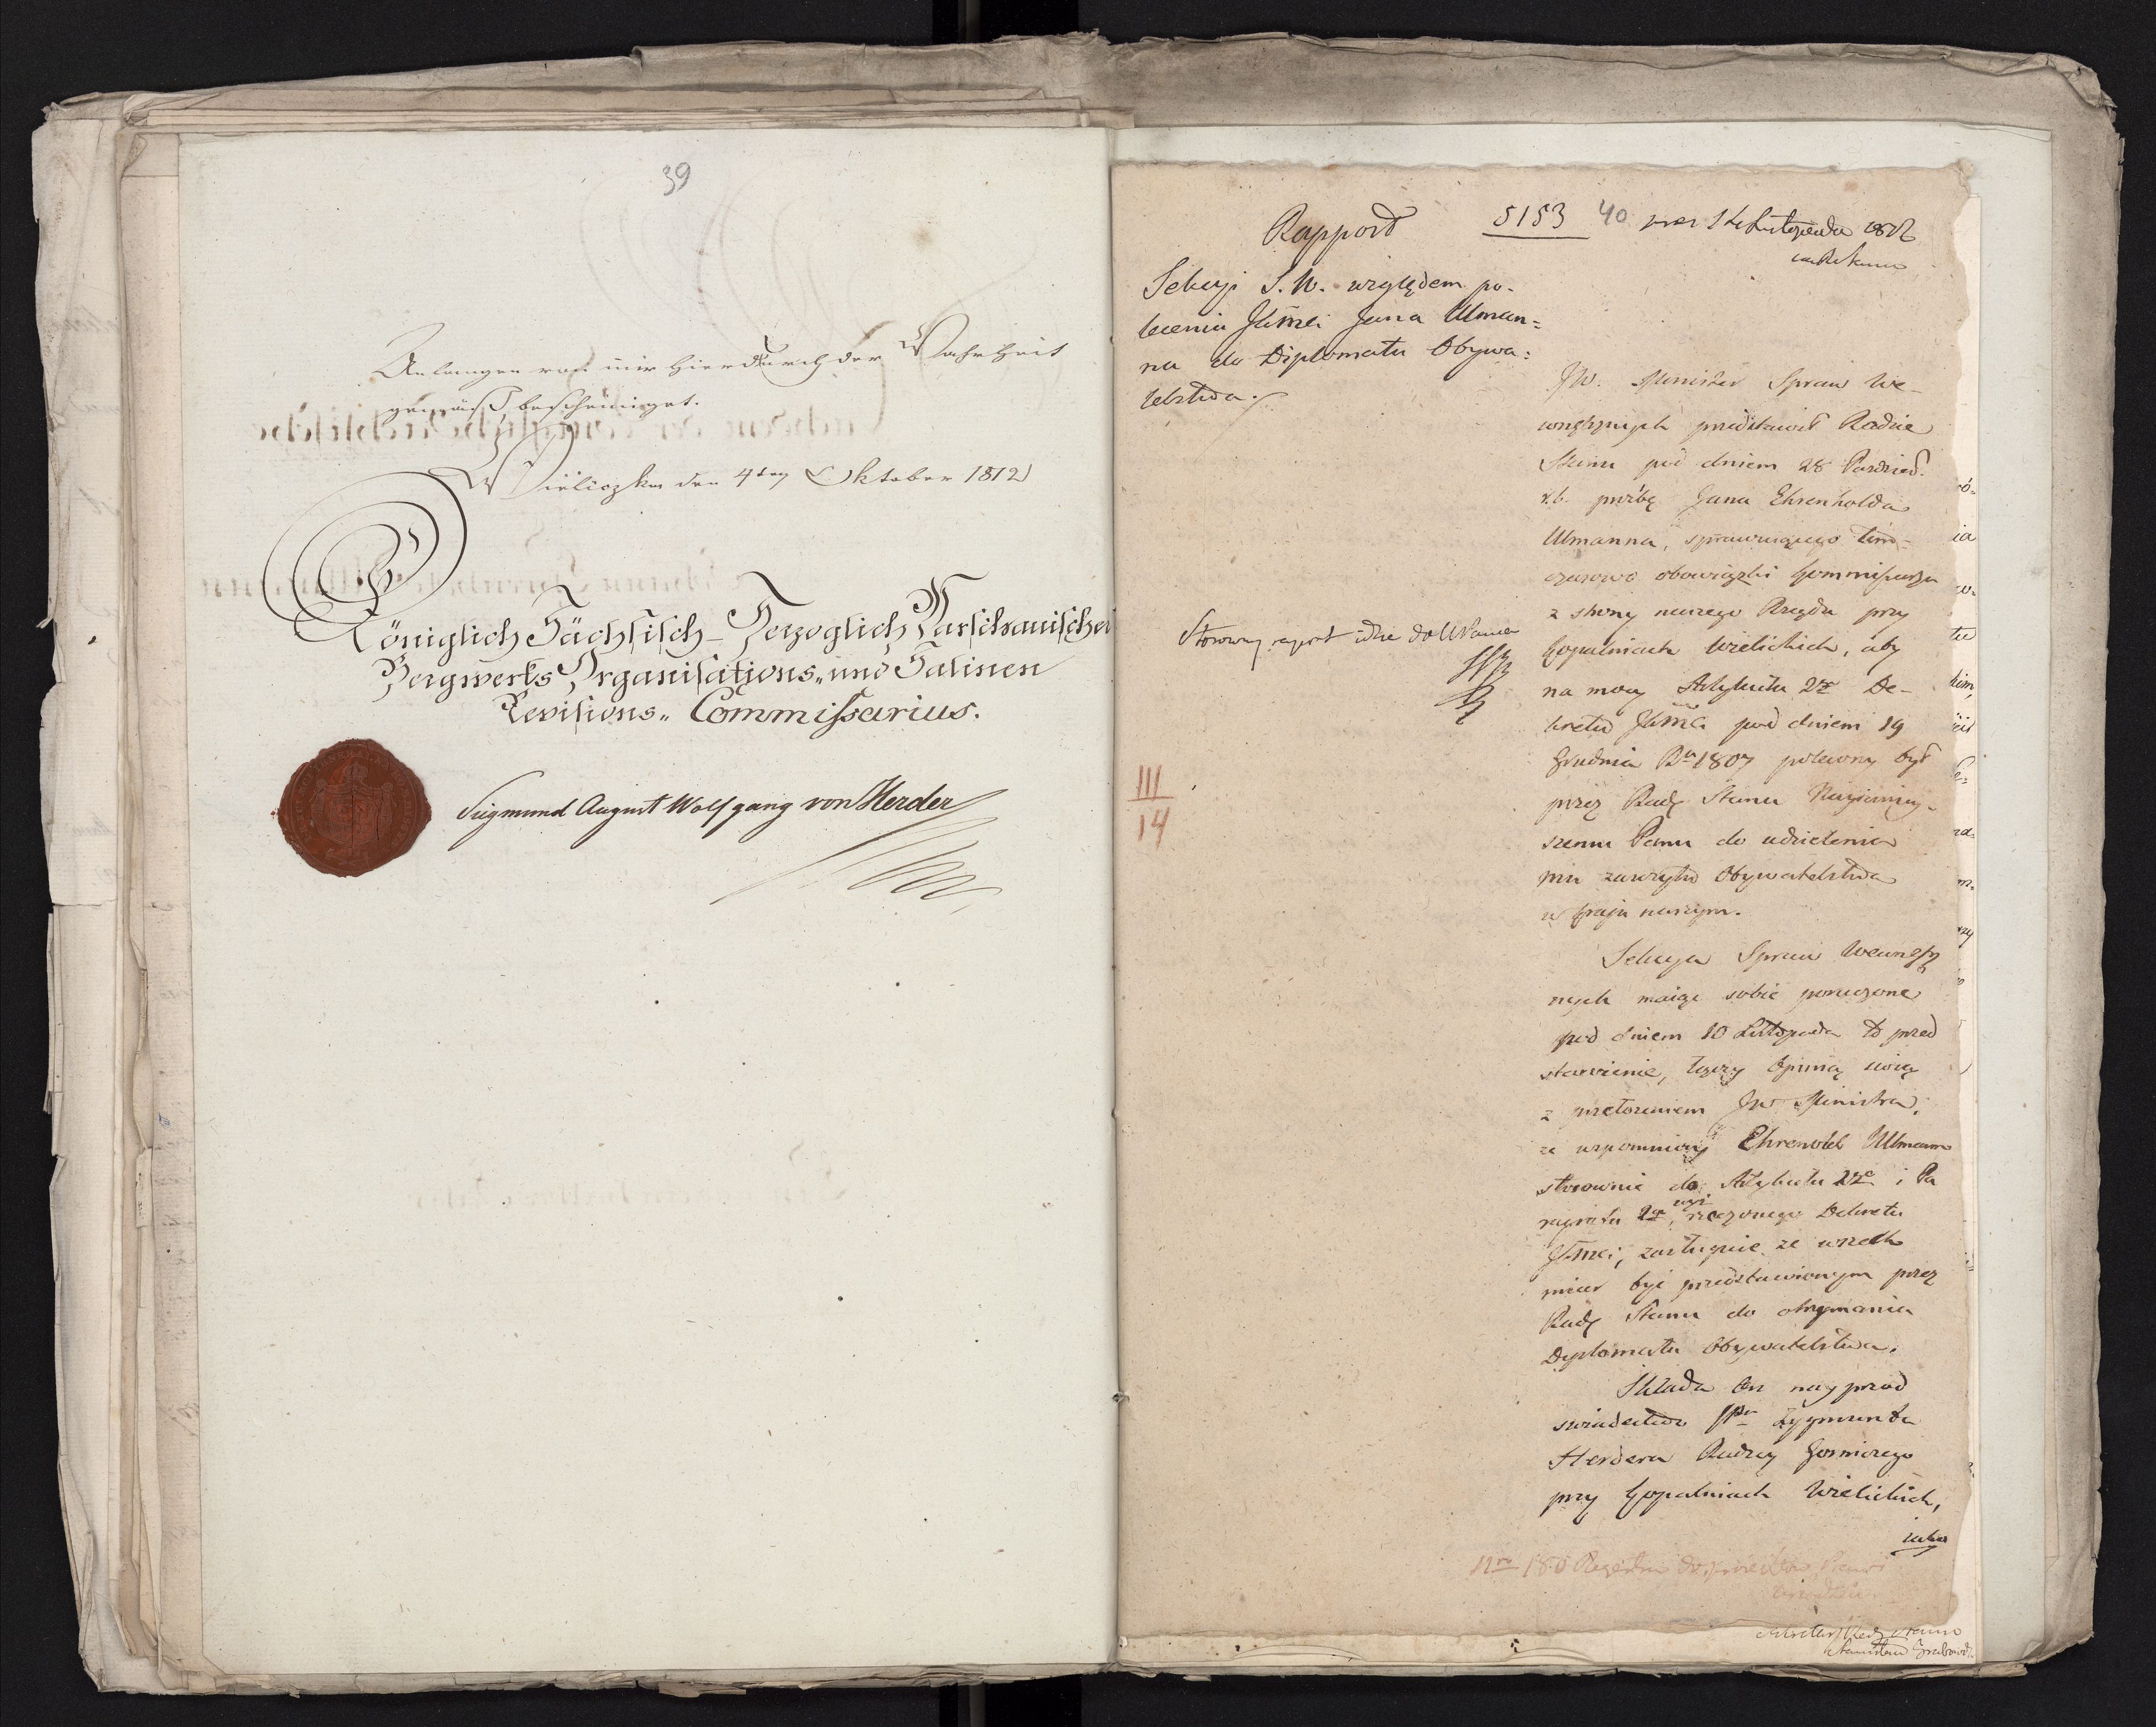 39
Verlangen von mir hierdurch der Wahrheit
gemäß bescheiniget.
Wieliczka den 4ten Oktober 1812
Königlich Sächsisch-Herzoglich Warschauischer
Bergwerks Organisations- und Salinen
Revisions- Commissarius.
Sigmund August Wolfgang von Herder
5153 40
Rapport
Sekcyi S. W. względem po-
lecenia JKmci Jana Ulman=
na do Diplomatu Obywa=
telstwa.
Stosowny raport idzie do
III
14
JW. Minister Spraw We-
wnętrznych przedstawił Radzie
Stanu pod dniem 28 Paździer.
r.b. proźbę Jana Ehrenholda
Ulmanna, sprawuiącego tym-
czasowo obowiązki Kommissarza
z strony naszego Rządu przy
Kopalniach Wielickich, aby
na mocy Artykułu 2go De-
kretu JKmci pod dniem 19
Grudnia Ru 1807 polecony był
przez Radę Stanu Nayiaśniey-
szemu Panu do udzielenia
mu zaszczytu Obywatelstwa
w kraju naszym.
Sekcya Spraw Wewnętrz
nych maiąc sobie poruczone
pod dniem 10 Listopada to przed
stawienie, łączy Opinią swoią
z wnioskiem JW Ministra,
że wspomniony Ehrenhold Ulmann
stosownie do Artykułu 2go i Pa
ragrafu 2go, rzeczonego Dekretu
JKmci, zasługuie ze wszech
miar być przedstawionym przez
Radę Stanu do otrzymania
Dyplomatu Obywatelstwa.
Składa On nayprzód
świadectwo JPa Zygmunta
Herdera Radzcy Gorniczego
przy Kopalniach Wielickich,
iako
Sekretarz Rady Stanu
Stanisław Grabowski